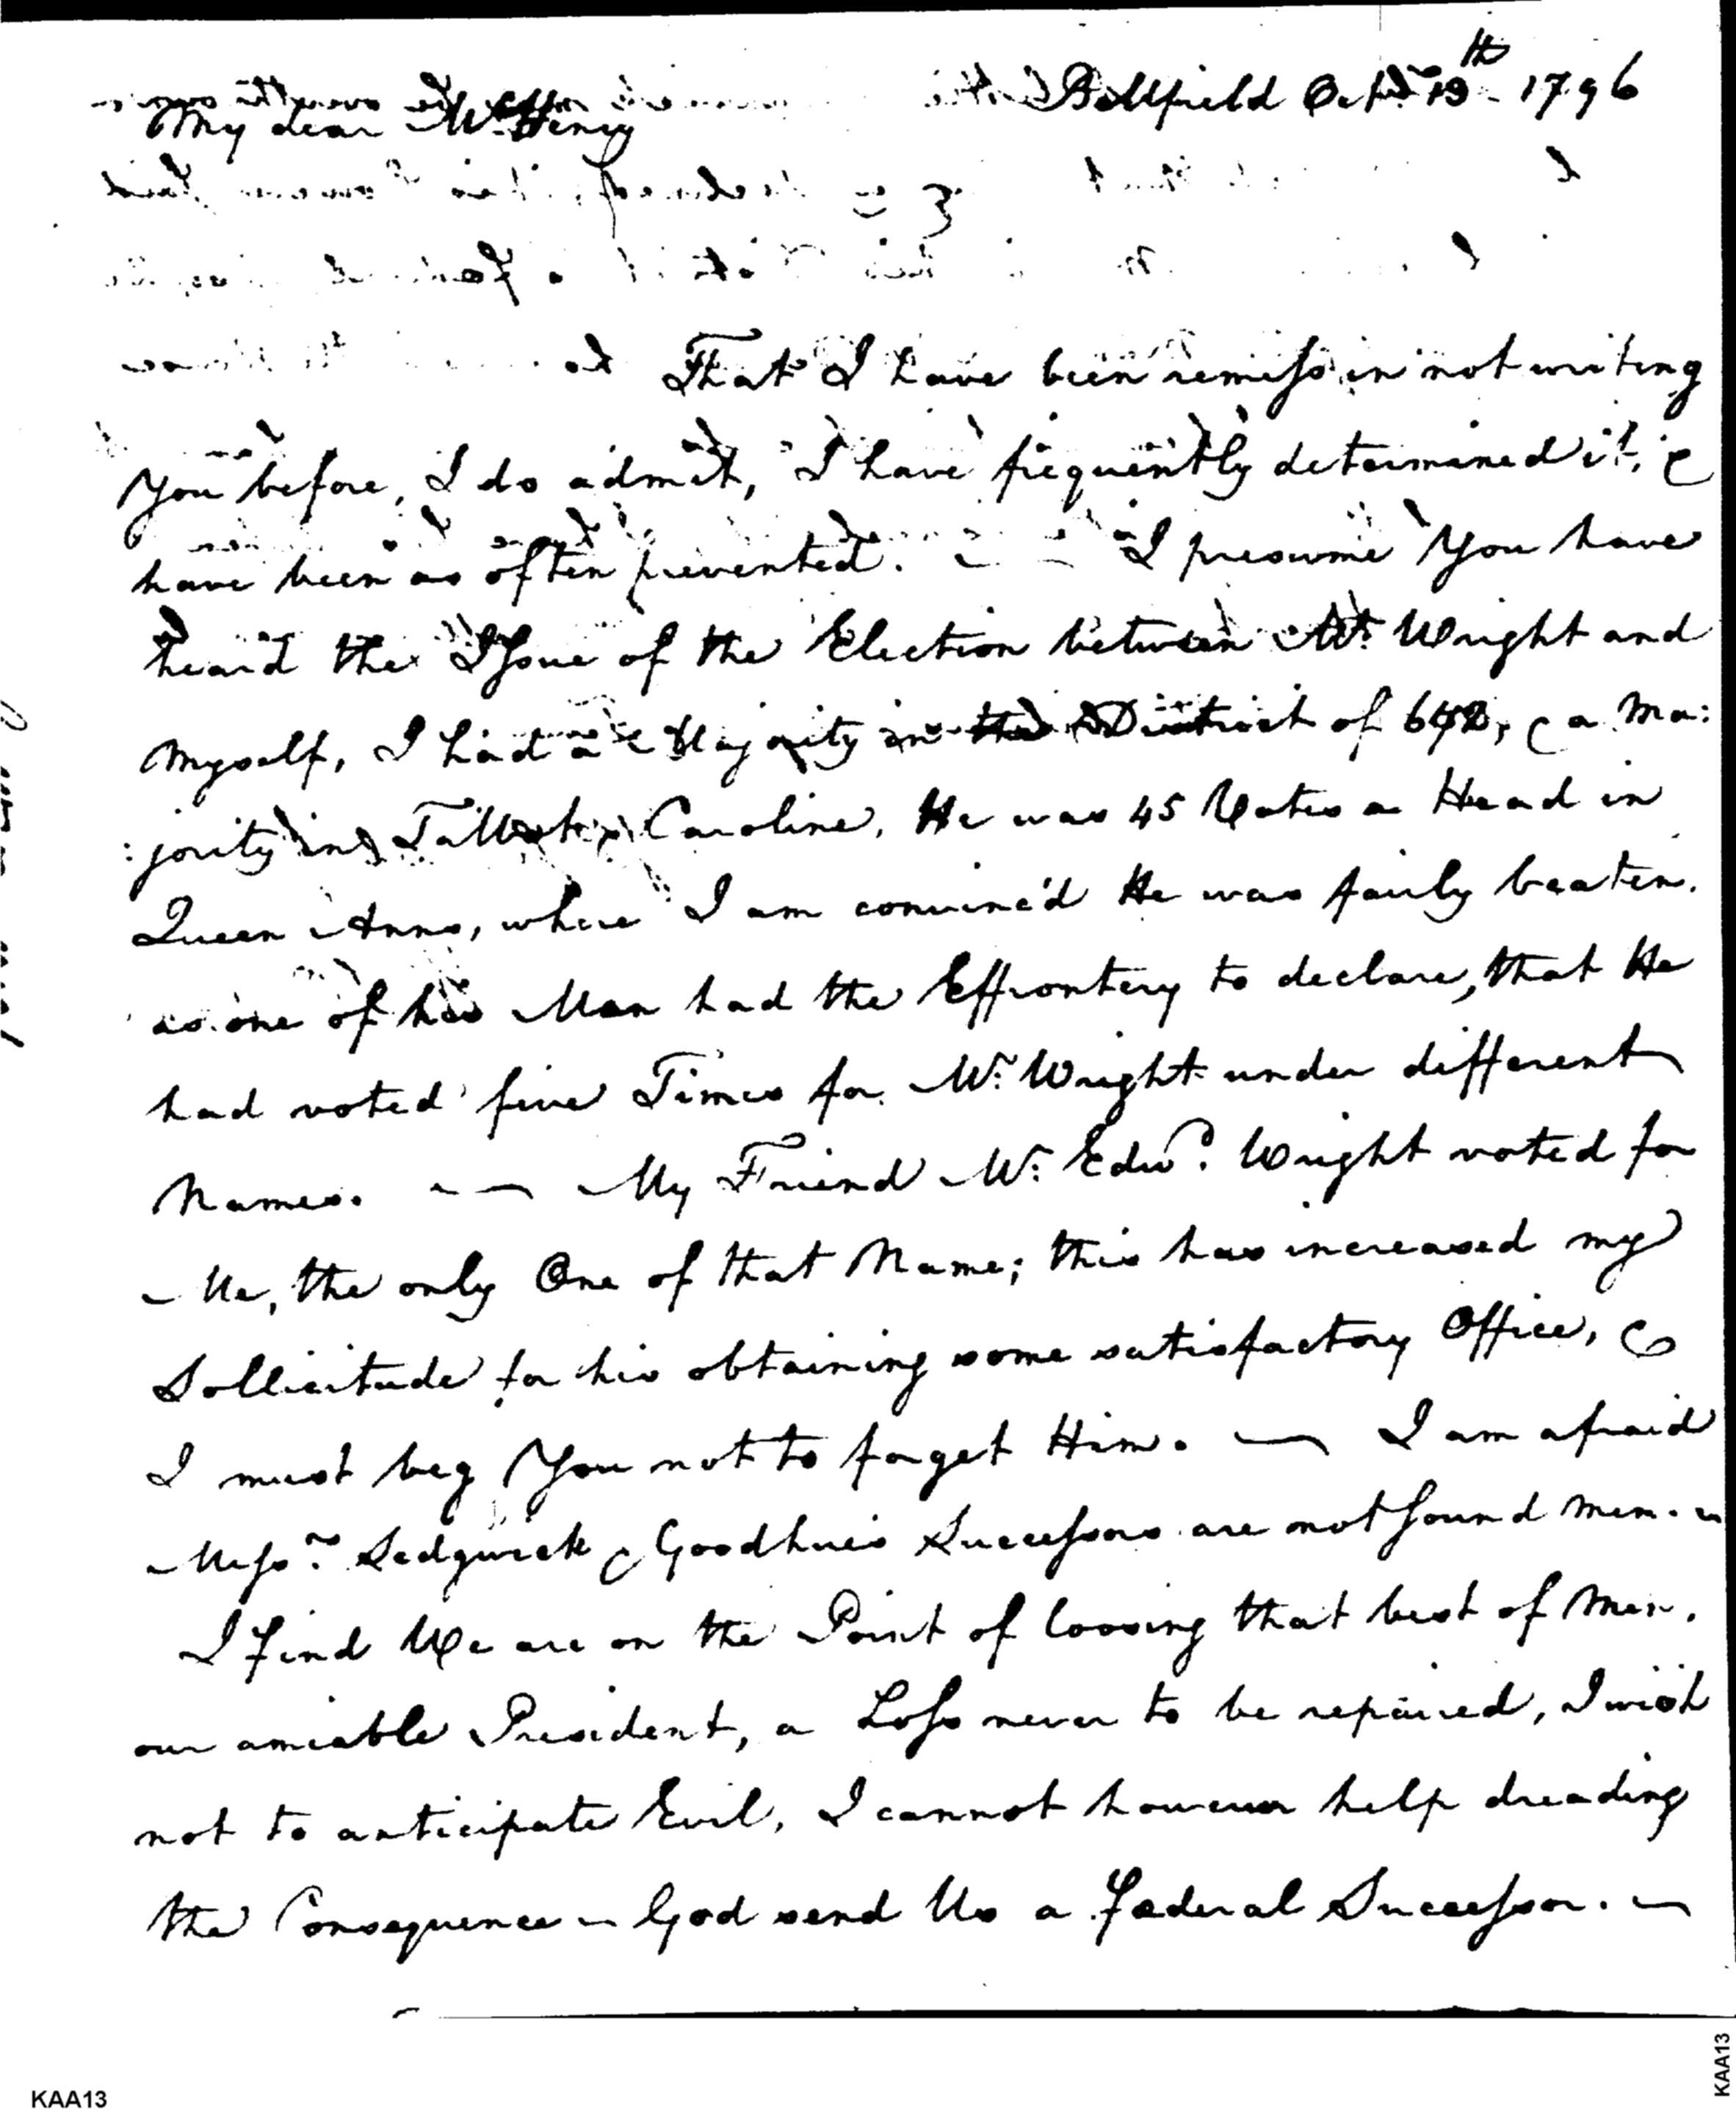 Bellfield Octr. 19th 1796
My dear McHenry
That I have been remiss in not writing
You before, I do admit, I have frequently determined it, &
have been as often prevented. — I presume You have
heard the Issue of the Election between Mr. Wright and
Myself, I had a Majority in the District of &  a Ma:
:jority in Talbot & Caroline, He was 45 Votes a Head in
Queen Anns, where I am convinc'd He was fairly beaten.
as one of his Men had the Effrontery to declare, that He
had voted five Times for Mr. Wright under different
Names. — My Friend Mr. Edwd. Wright voted for
Me, the only One of that Name; this has increased my
Sollicitude for his obtaining some satisfactory Office, &
I must beg You not to forget Him. — I am afraid
Messrs. Sedgwick & Goodhues Successors are not sound Men. —
I find We are on the Point of loosing that best of Men,
our amiable President, a Loss never to be repaired, I wish
not to anticipate Evil, I cannot however help dreading
the Consequence — God send Us a Fæderal Successor. —
KAA13
KAA13